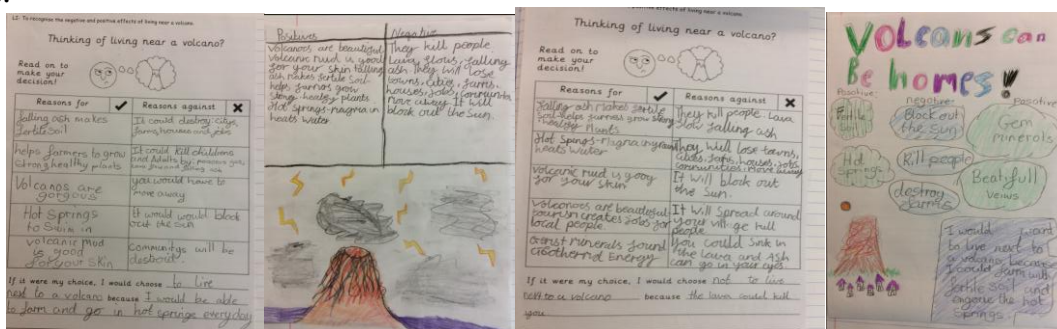 LO: To recognise the negative and positive effects of living near a volcano.
Thinking of living near a volcano?
Read on to
make your
decision!
Reasons for ✓ Reasons against ✗
falling ash makes
fertile soil
It could destroy citys,
farms, houses and jobs
helps farmers to grow
strong healthy plants
It could kill childrens
and Adults by
Volcanos are
gorgous
you would have to
move away
Hot Springs
to Swim in
It would would block
out the sun
volcanic mud
is good
for your skin
Communitys will be
If it were my choice, I would choose to live
next to a volcano because I would be able
to farm and go in hot springe everyday
Positives
Negative
volcanoes are beautiful
volcanic mud is good
for your skin falling
ash makes fertile soil
helps farmers grow
strong, healthy plants
Hot springs-magma in
heats water
They kill people.
Lava flows, falling
ash They will lose
towns, cities, farms,
houses, jobs, community
move away It will
block out the Sun.
positive effects of living near a volcano.
Thinking of living near a volcano?
Read on to
make your
decision!
Reasons for ✓ Reasons against ✗
falling ash makes fertile
soil helps farmers grow strong
healthy plants
They kill people. Lava
flow falling ash
Hot Springs-Magma
heats water
They will lose towns,
cities, farms, houses, jobs,
communities, move away
volcanic mud is good
for your skin
It will block out
the Sun.
volcanoes are beautiful
tourism creates jobs for
local people.
It will spread around
your village kill
people
minerals found
Energy
You could sink in
the lava and Ash
can go in your eyes.
If it were my choice, I would choose not to live
next to a volcano because the lava could kill
you
Volcans can
Be homes!
Posotive:
negative:
Posotive
Fertile
Soil
Block out
the sun
Gem
minerals
Hot
Springs
Kill people
destroy
farms
Beatifull
veiws
I would want
to live next to
a volcano, because
I could farm with
fertile soil and
the hot
springs.